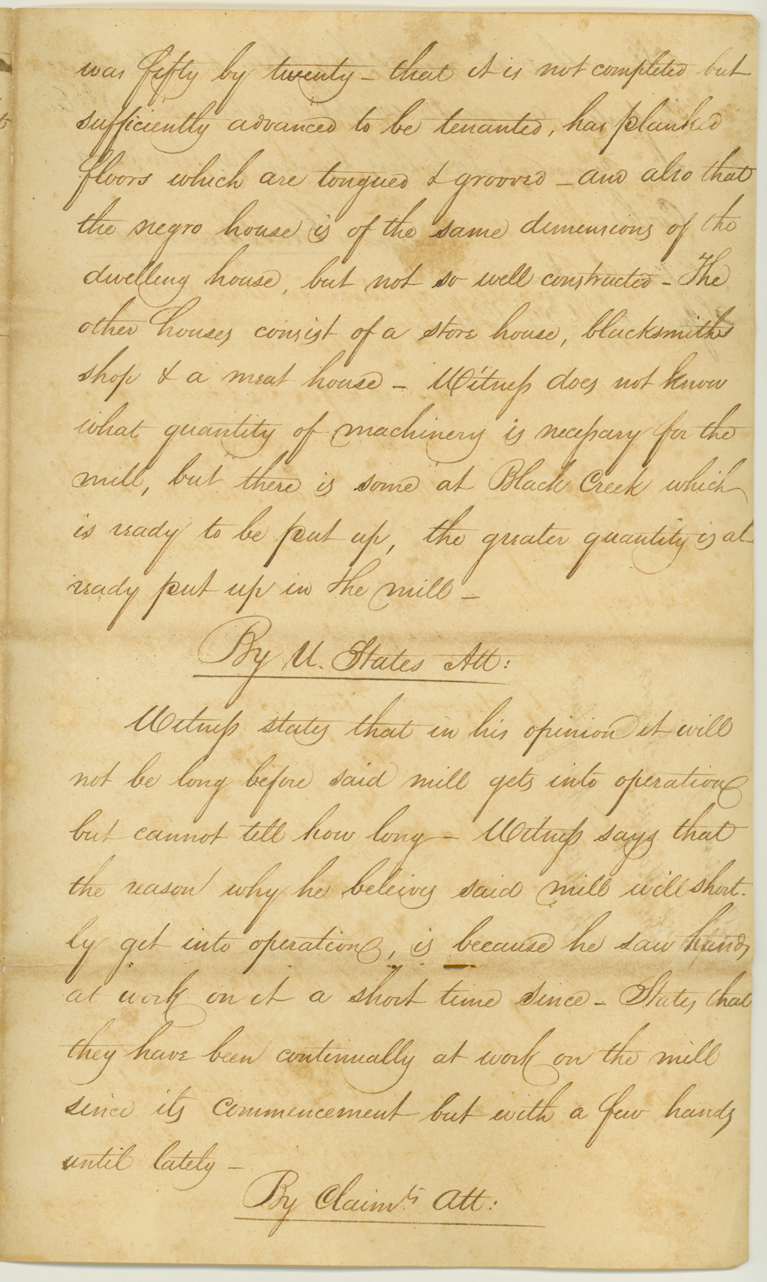 was fifty by twenty - that it is not completed but
sufficiently advanced to be tenanted, has planked
floors which are tongued & grooved - and also that
the negro house is of the same demensions of the
dwelling house, but not so well constructed - The
other houses consist of a store house, blacksmiths
shop & a meat house - Witness does not know
what quantity of machinery is necessary for the
mill, but there is some at Black Creek which
is ready to be put up, the greater quantity is al-
ready put up in the mill -
By U. States Att:
Witness states that in his opinion it will
not be long before said mill gets into operation
but cannot tell how long - Witness says that
the reason why he beleives said mill will short-
ly get into operation, is because he saw hands
at work on it a short time since - States that
they have been continually at work on the mill
since its commencement but with a few hands
until lately -
By Claimts Att: